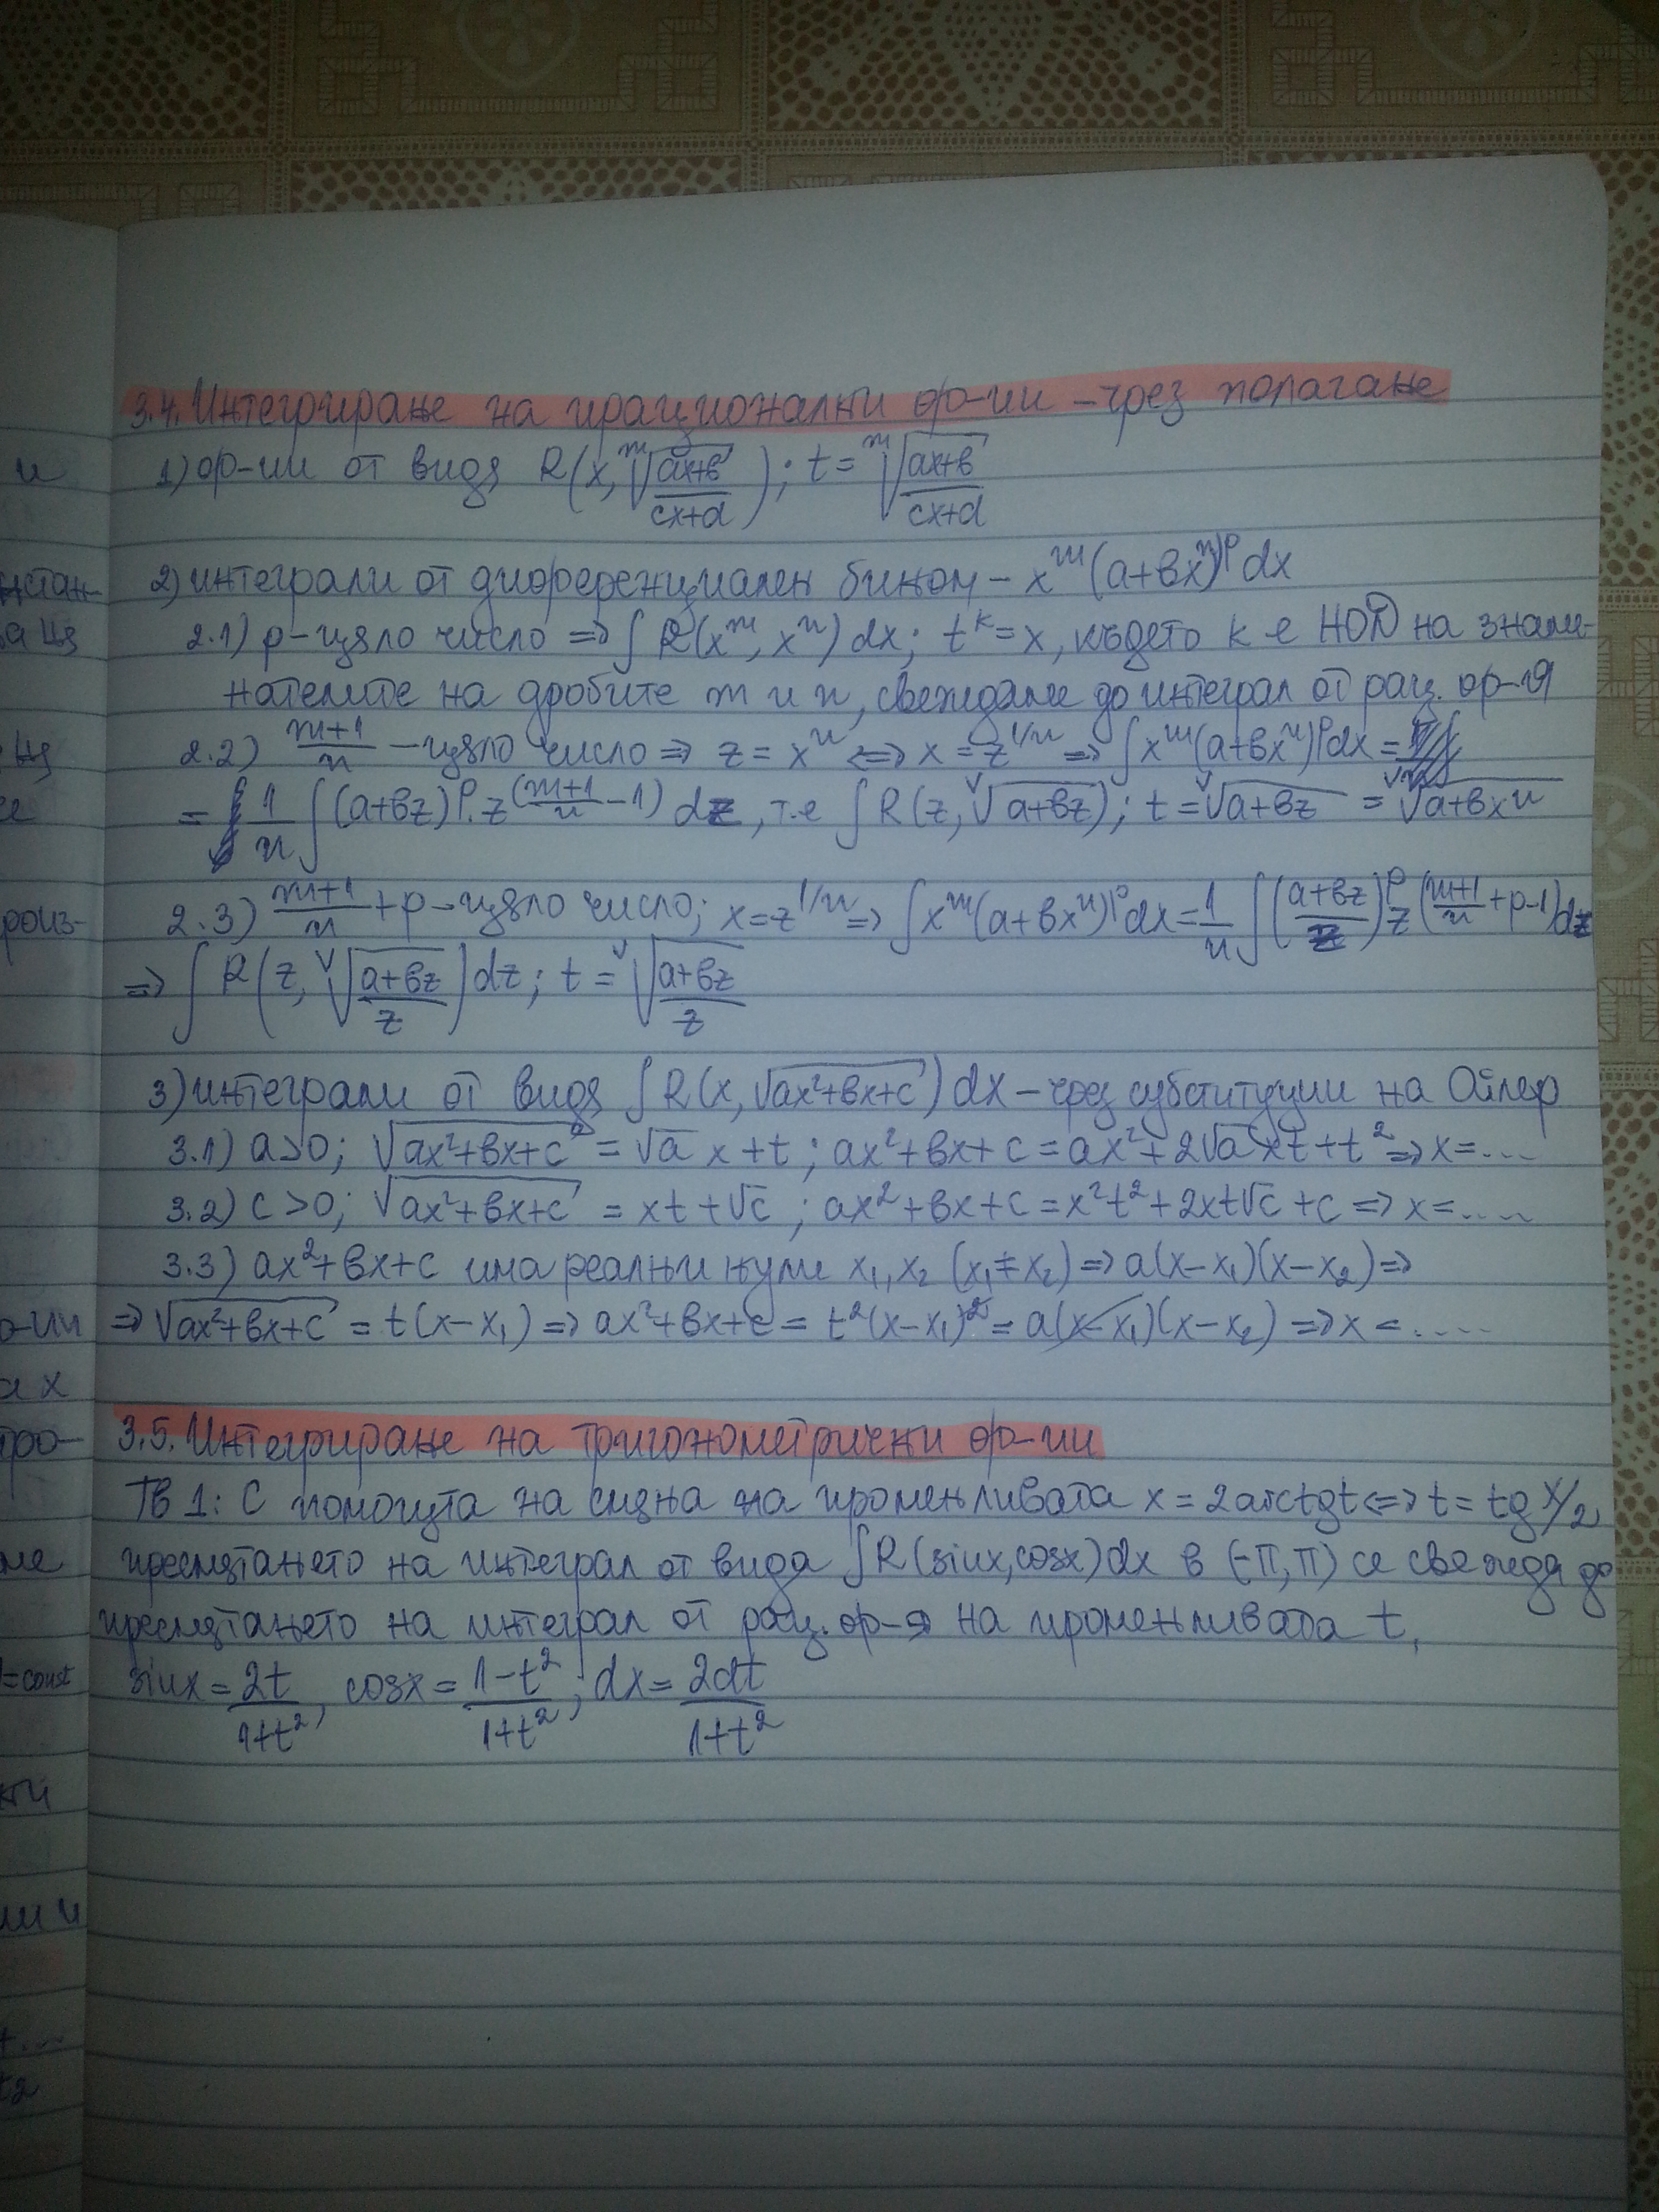 3.4. Интегриране на ирационални ф-ии – чрез полагане
1) ф-ии от вида R(x, ᵐ√((ax+b)/(cx+d))); t = ᵐ√((ax+b)/(cx+d))
2) интеграли от диференциален бином – xᵐ(a+bxⁿ)ᵖ dx
2.1) p – цяло число => ∫R(xᵐ, xⁿ) dx; tᵏ = x, където k е НОД на знаме-
нателите на дробите m и n, свеждаме до интеграл от рац. ф-я
2.2) (m+1)/n – цяло число => z = xⁿ <=> x = z^(1/n) => ∫xᵐ(a+bxⁿ)ᵖdx =
= 1/n ∫(a+bz)ᵖ. z^((m+1)/n – 1) dz, т.е ∫R(z, ᵛ√(a+bz)); t = ᵛ√(a+bz) = ᵛ√(a+bxⁿ)
2.3) (m+1)/n + p – цяло число; x = z^(1/n) => ∫xᵐ(a+bxⁿ)ᵖdx = 1/n ∫((a+bz)/z)ᵖ z^((m+1)/n + p-1) dz
=> ∫R(z, ᵛ√((a+bz)/z)) dz; t = ᵛ√((a+bz)/z)
3) интеграли от вида ∫R(x, √(ax²+bx+c)) dx – чрез субституции на Ойлер
3.1) a>0; √(ax²+bx+c) = √a x + t; ax²+bx+c = ax²+2√a xt+t² => x=....
3.2) c>0; √(ax²+bx+c) = xt+√c; ax²+bx+c = x²t²+2xt√c+c => x=.....
3.3) ax²+bx+c има реални нули x₁, x₂ (x₁≠x₂) => a(x-x₁)(x-x₂) =>
=> √(ax²+bx+c) = t(x-x₁) => ax²+bx+c = t²(x-x₁)² = a(x-x₁)(x-x₂) => x = .....
3.5. Интегриране на тригонометрични ф-ии
Тв 1: С помощта на смяна на променливата x = 2arctgt <=> t = tg x/2,
пресмятането на интеграл от вида ∫R(sinx, cosx) dx в (-π, π) се свежда до
пресмятането на интеграл от рац. ф-я на променливата t,
sinx = 2t/(1+t²), cosx = (1-t²)/(1+t²); dx = 2dt/(1+t²)